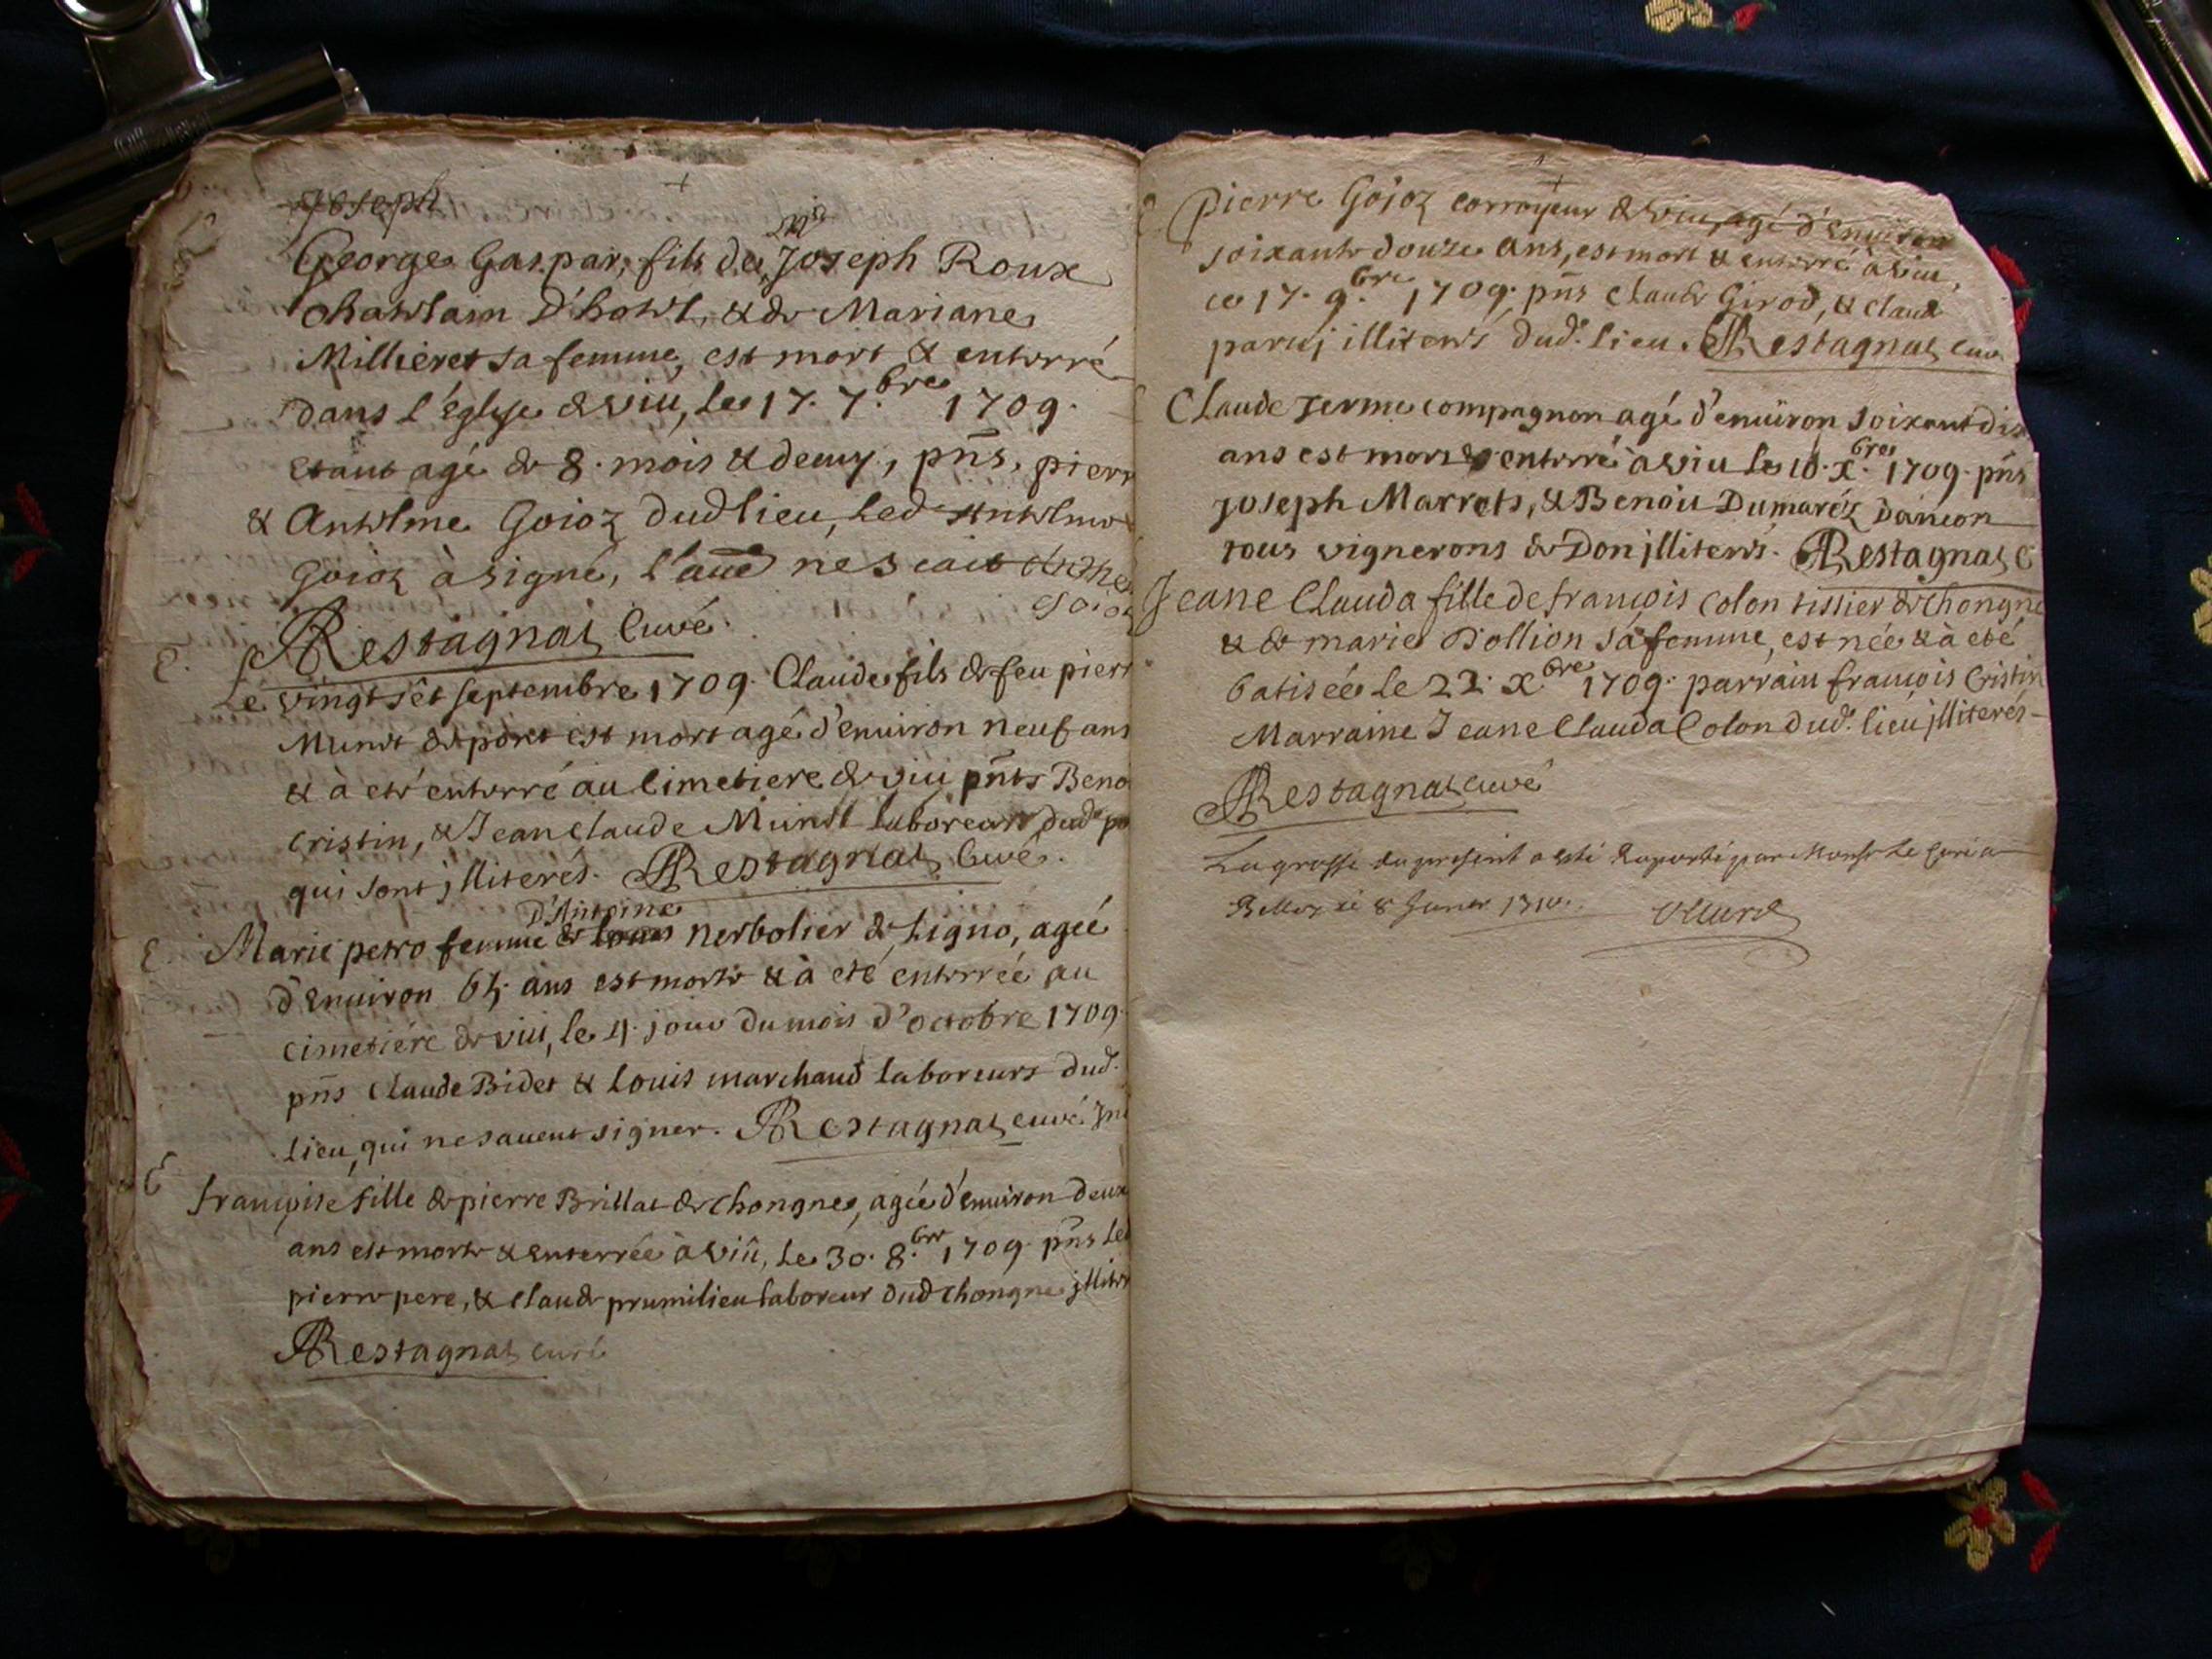 Joseph
George Gaspar, fils de Mre Joseph Roux
chatelain D'hotel, & de Mariane
Millieret sa femme, est mort & enterré
dans l'églyse de viu, le 17. 7.bre 1709.
etant agé de 8. mois & demy, pñs, pierr
& Antelme Goioz dud lieu, led Antelme
Goioz à signé, l'autre ne scait Anthe
Goioz
Restagnat Curé.
E. Le vingt set septembre 1709. Claude fils de feu pierr
Munet de port est mort agé d'enuiron neuf ans
& à eté enterré au Cimetiere de viu pñts Beno
Cristin, & Jean Claude Munet laboreurs dud. po
qui sont jlliterés. Restagnat Curé.
D'Antoine
E. Marie petro femme de Louis nerbolier de Ligno, ageé
d'Enuiron 65. ans est morte & à eté enterreé au
cimetiére de viu, le 4. jour du mois d'octobre 1709.
pñs Claude Bidet & Louis marchand laboreurs dud.
lieu, qui ne sauent signer. Restagnat curé
E françoise fille de pierre Brillat de Chongnes, ageé d'enuiron deux
ans est morte & enterrée à viu, le 30. 8.bre 1709. pñs led
pierre pere, & Claude prumilieu laboreur dud Chongne jlliter
Restagnat curé
E. Pierre Goioz corroyeur de viu, agé d'Enuiron
soixante douze ans, est mort & enterré à viu,
ce 17. 9.bre 1709. pñs Claude Girod, & Claude
paruj illiterés dud. lieu. Restagnat Cure
Claude Jerme compagnon agé d'enuiron soixant dix
ans est mort & enterré à viu le 10. X.bres 1709. pñs
Joseph Marrets, & Benoit Dumaréz
tous vignerons de Don jlliterés. Restagnat C
Jeane Clauda fille de françois Colon tissier de Chongne
& de marie Dollion sa femme, est née & à eté
batisée le 22. X.bre 1709. parrain françois Cristin
Marraine Jeane Clauda Colon dud. lieu jlliterés
Restagnat curé
La grosse du present a esté raporté par Monsr Le Curé a
Belley le 8 Janer 1710.